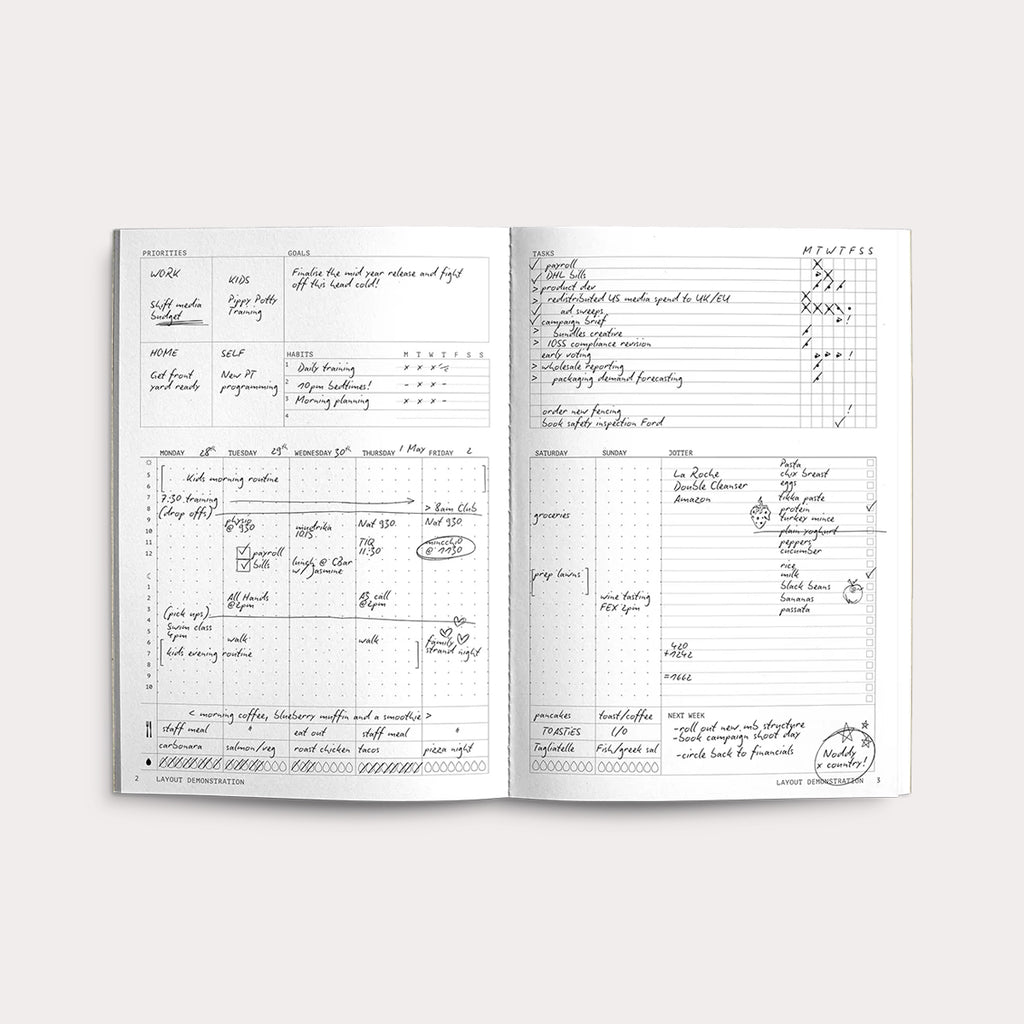 PRIORITIES
WORK
Shift media
budget
KIDS
Pippy Potty
Training
HOME
Get front
yard ready
SELF
New PT
programming
GOALS
Finalise the mid year release and fight
off this head cold!
HABITS M T W T F S S
1 Daily training x x x
2 10pm bedtimes! - x x -
3 Morning planning x x x -
4
MONDAY 28th TUESDAY 29th WEDNESDAY 30th THURSDAY 1 May FRIDAY 2
5
6
7
8
9
10
11
12
1
2
3
4
5
6
7
8
9
10
[ Kids morning routine ]
7:30 training
(drop offs)
> 8am Club
physio
@ 930
payroll
bills
All Hands
@2pm
walk
mudrika
1015
lunch @ CBar
w/ Jasmine
Nat 930
TIQ
11:30
A3 call
@2pm
walk
Nat 930
@ 1130
(pick ups)
Swim class
4pm
[kids evening routine ]
family
strand night
< morning coffee, blueberry muffin and a smoothie >
staff meal " eat out staff meal "
carbonara salmon/veg roast chicken tacos pizza night
2 LAYOUT DEMONSTRATION
TASKS M T W T F S S
payroll
DHL bills
> product dev
> redistributed US media spend to UK/EU
ad sweeps
campaign brief !
> bundles creative
> IOSS compliance revision
early voting !
> wholesale reporting
> packaging demand forecasting
order new fencing !
book safety inspection Ford
SATURDAY SUNDAY JOTTER
groceries
[prep lawns]
wine tasting
FEX 2pm
La Roche
Double Cleanser
Amazon
Pasta
chix breast
eggs
tikka paste
protein
turkey mince
plain yoghurt
peppers
cucumber
rice
milk
black beans
bananas
passata
420
+1242
=1662
pancakes toast/coffee
TOASTIES L/O
Tagliatelle Fish/greek sal
NEXT WEEK
-roll out new mb structure
-book campaign shoot day
-circle back to financials
Noddy
x country!
LAYOUT DEMONSTRATION 3